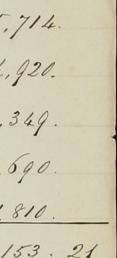 ,714.
,920.
,349.
,690.
,810.
153. 21